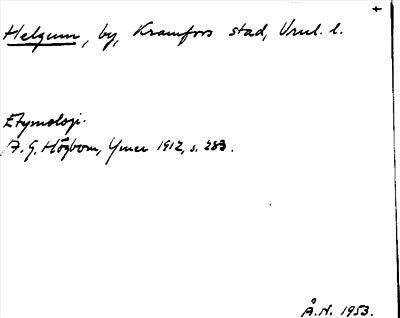 +
Helgum, by, Kramfors stad, Vrml. l.
Etymologi.
A. G. Högbom, Ymer 1912, s. 283.
Å.N. 1953.